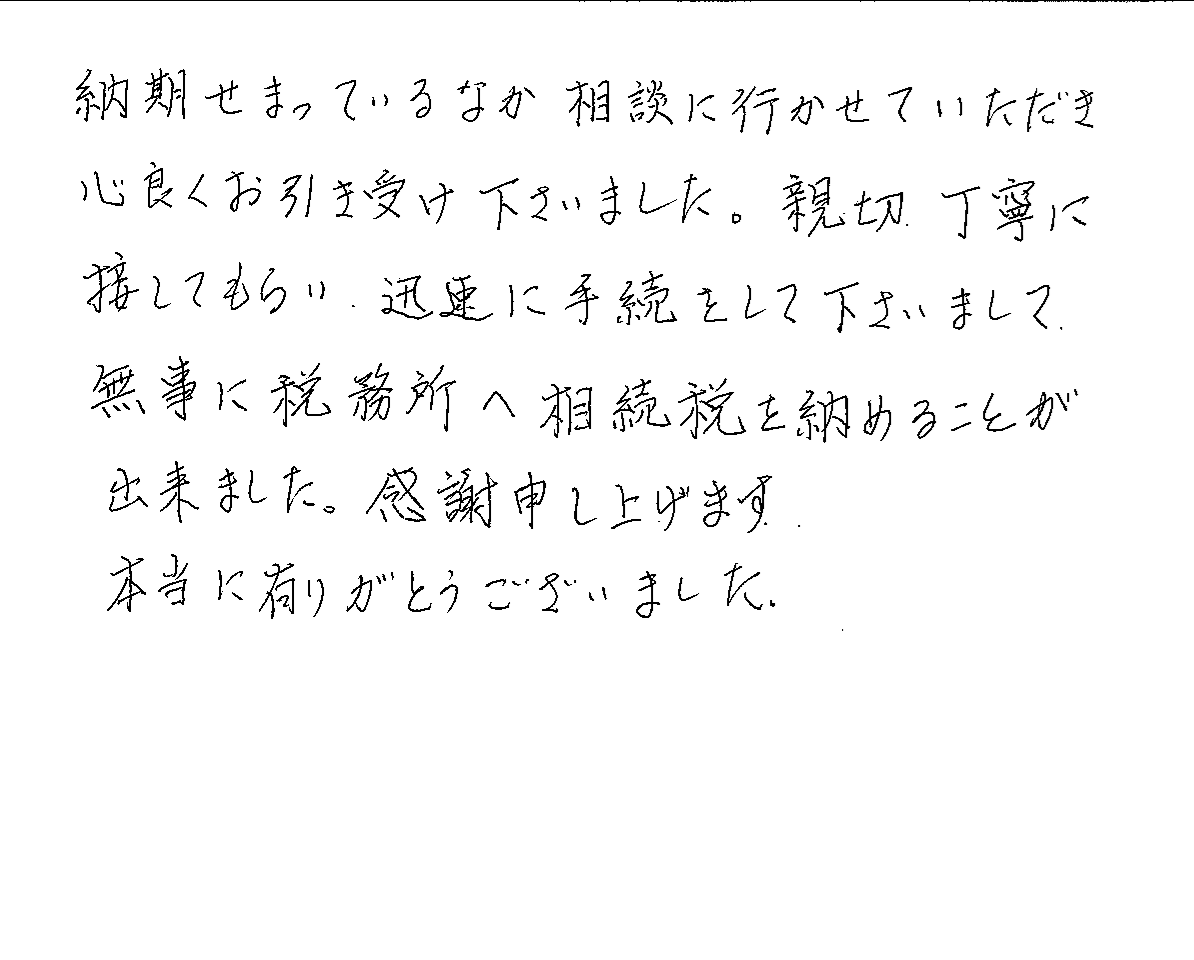 納期せまっているなか 相談に行かせていただき
心良くお引き受け下さいました。親切.丁寧に
接してもらい.迅速に手続をして下さいまして.
無事に税務所へ相続税を納めることが
出来ました。感謝申し上げます.
本当に有りがとうございました.